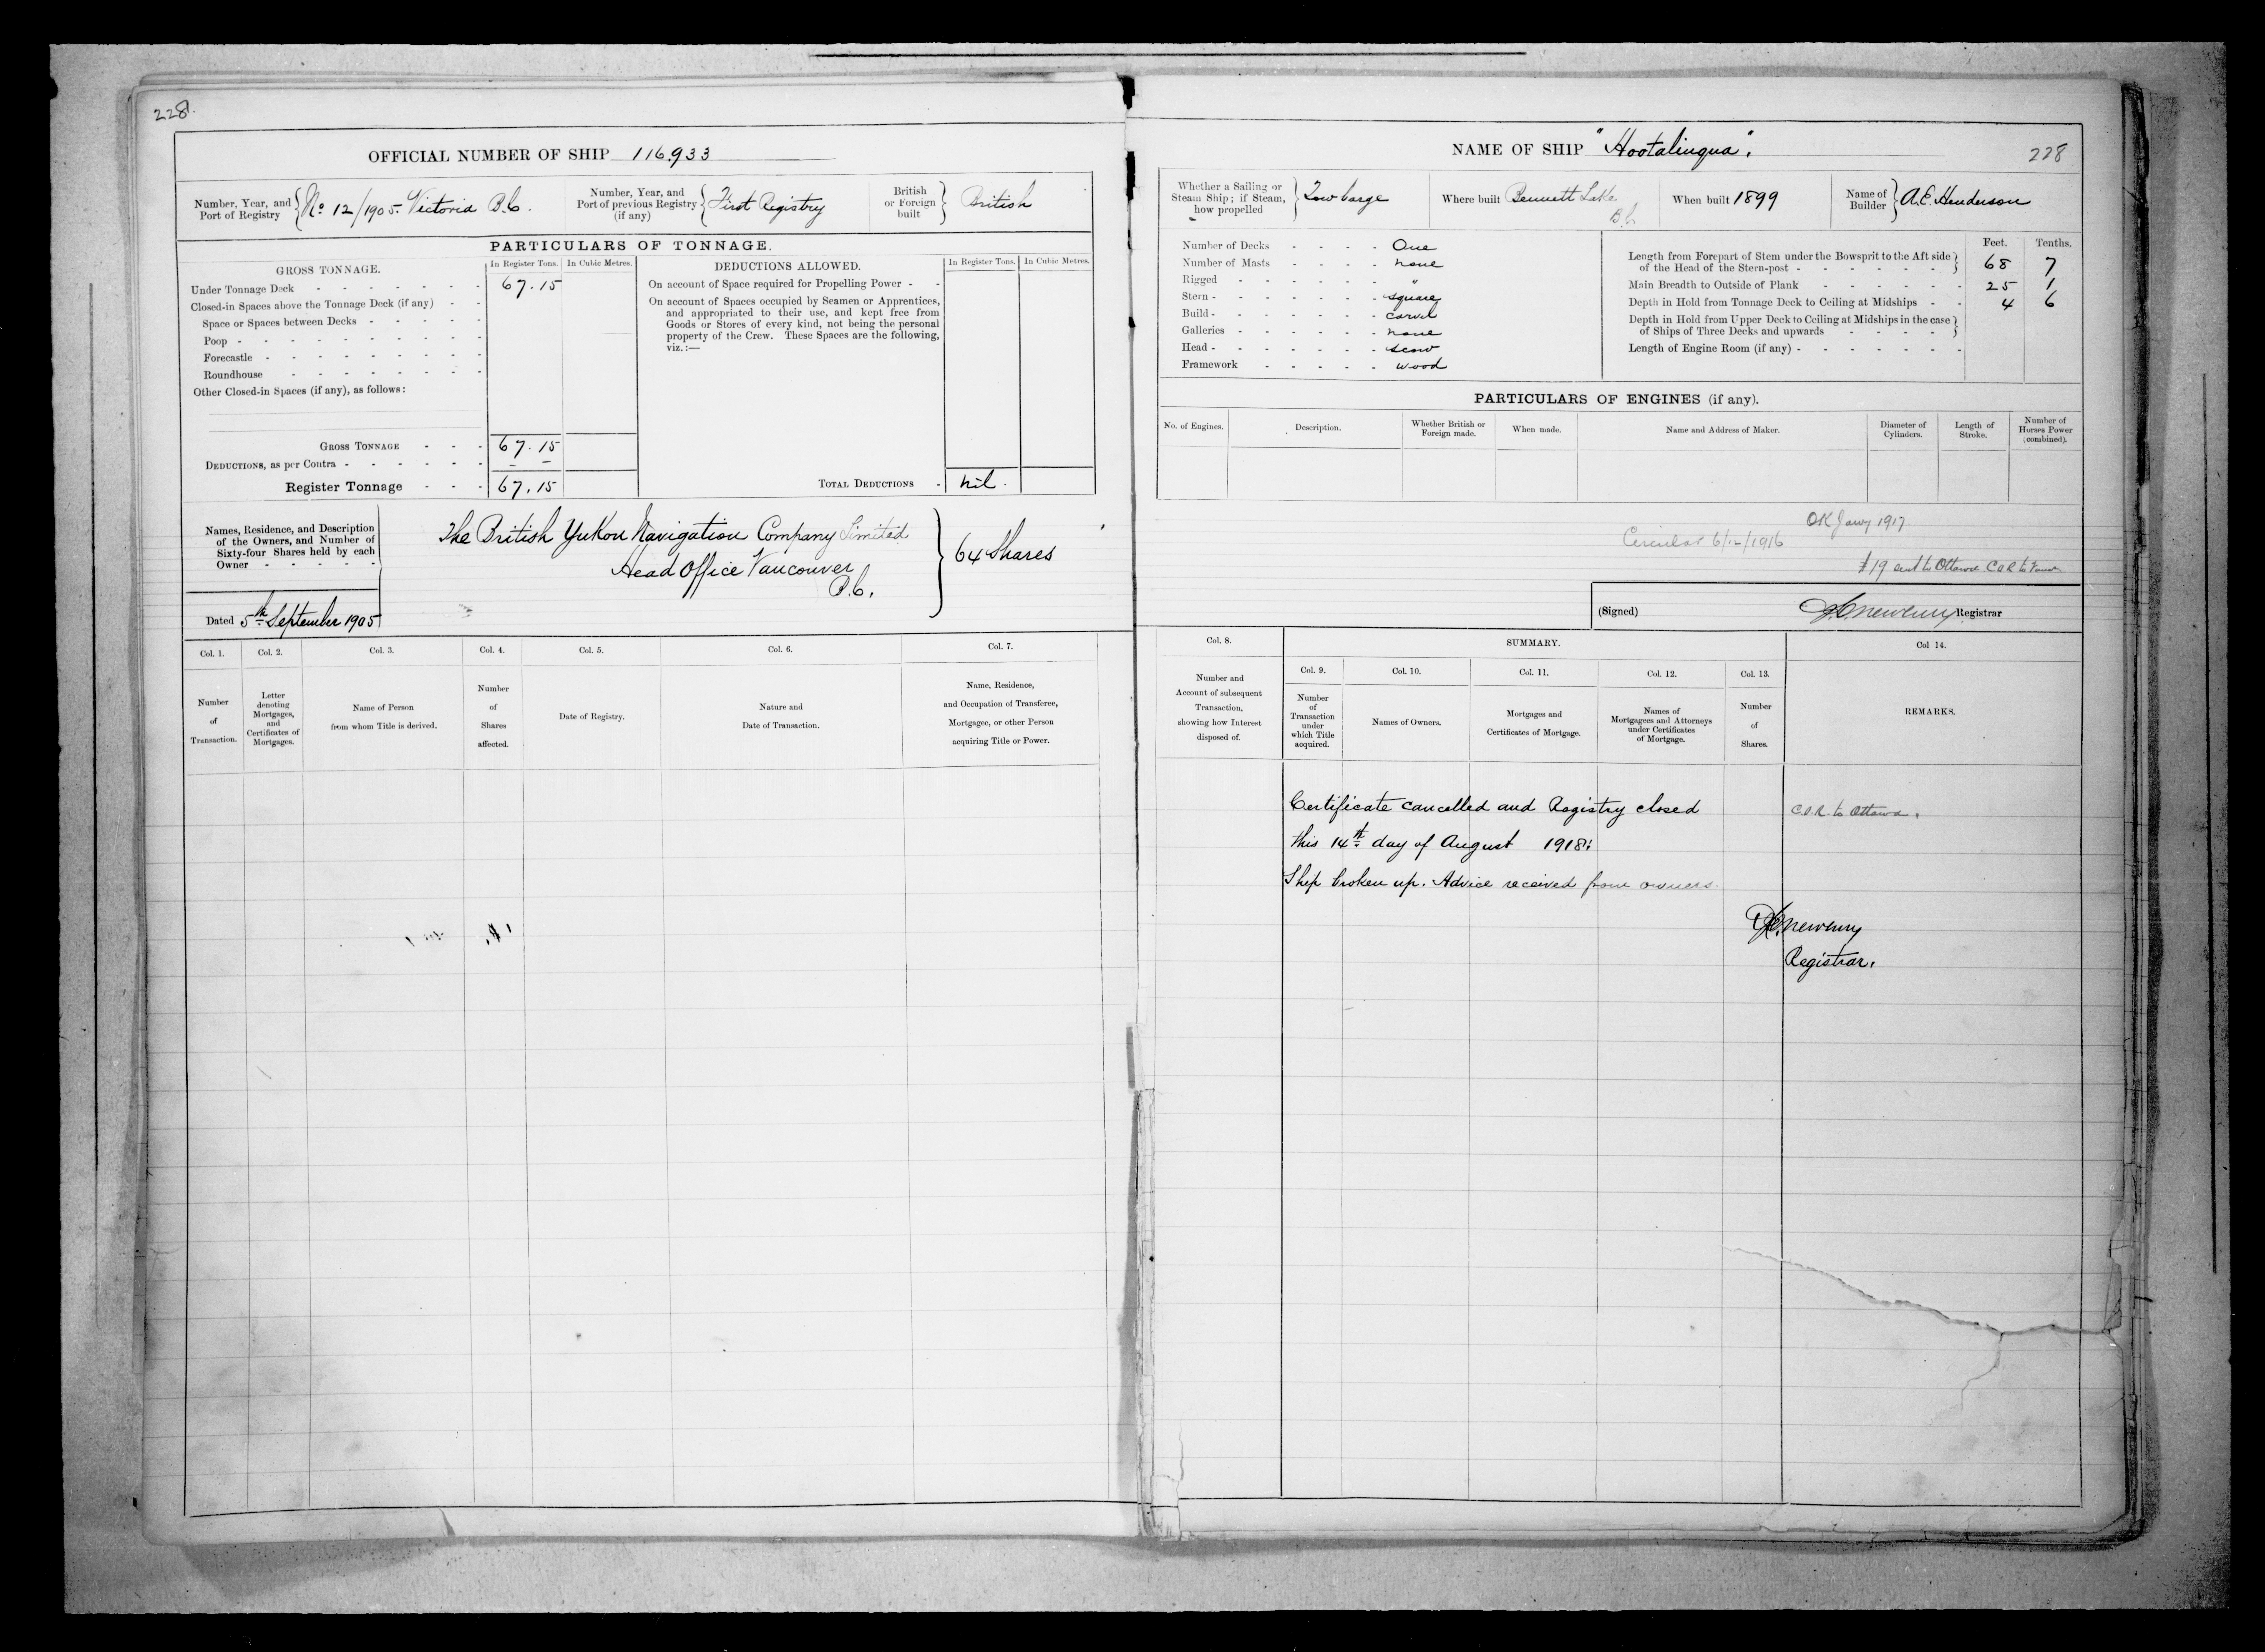 228.
OFFICIAL NUMBER OF SHIP 116,933
Number, Year, and Port of Registry No 12/1905. Victoria B.C.
Number, Year, and Port of previous Registry (if any) First Registry
British or Foreign built British
PARTICULARS OF TONNAGE.
GROSS TONNAGE.
In Register Tons. In Cubic Metres.
Under Tonnage Deck 67.15
Closed-in Spaces above the Tonnage Deck (if any)
Space or Spaces between Decks
Poop
Forecastle
Roundhouse
Other Closed-in Spaces (if any), as follows:
GROSS TONNAGE 67.15
DEDUCTIONS, as per Contra - -
Register Tonnage 67.15
DEDUCTIONS ALLOWED.
In Register Tons. In Cubic Metres.
On account of Space required for Propelling Power
On account of Spaces occupied by Seamen or Apprentices,
and appropriated to their use, and kept free from
Goods or Stores of every kind, not being the personal
property of the Crew. These Spaces are the following,
viz.:—
TOTAL DEDUCTIONS nil.
Names, Residence, and Description
of the Owners, and Number of
Sixty-four Shares held by each
Owner
The British Yukon Navigation Company Limited
Head Office Vancouver
B.C.
64 Shares
Dated 5th September 1905
Col. 1. Col. 2. Col. 3. Col. 4. Col. 5. Col. 6. Col. 7.
Number of Transaction.
Letter denoting Mortgages, and Certificates of Mortgages.
Name of Person from whom Title is derived.
Number of Shares affected.
Date of Registry.
Nature and Date of Transaction.
Name, Residence, and Occupation of Transferee, Mortgagee, or other Person acquiring Title or Power.
NAME OF SHIP "Hootalinqua".
228
Whether a Sailing or Steam Ship; if Steam, how propelled Tow barge
Where built Bennett Lake B.C.
When built 1899
Name of Builder A.E. Henderson
Number of Decks One
Number of Masts none
Rigged "
Stern square
Build carvel
Galleries none
Head scow
Framework wood
Feet. Tenths.
Length from Forepart of Stem under the Bowsprit to the Aft side
of the Head of the Stern-post 68 7
Main Breadth to Outside of Plank 25 1
Depth in Hold from Tonnage Deck to Ceiling at Midships 4 6
Depth in Hold from Upper Deck to Ceiling at Midships in the case
of Ships of Three Decks and upwards
Length of Engine Room (if any)
PARTICULARS OF ENGINES (if any).
No. of Engines.
Description.
Whether British or Foreign made.
When made.
Name and Address of Maker.
Diameter of Cylinders.
Length of Stroke.
Number of Horses Power (combined).
OK Jany 1917
Circular 6/12/1916
sent to Ottawa C.O.R. to
(Signed) Registrar
Col. 8.
Number and Account of subsequent Transaction, showing how Interest disposed of.
SUMMARY.
Col. 9. Col. 10. Col. 11. Col. 12. Col. 13. Col 14.
Number of Transaction under which Title acquired.
Names of Owners.
Mortgages and Certificates of Mortgage.
Names of Mortgagees and Attorneys under Certificates of Mortgage.
Number of Shares.
REMARKS.
Certificate cancelled and Registry closed
this 14th day of August 1918:
Ship broken up. Advice received from owners.
C.O.R. to Ottawa.
Registrar.